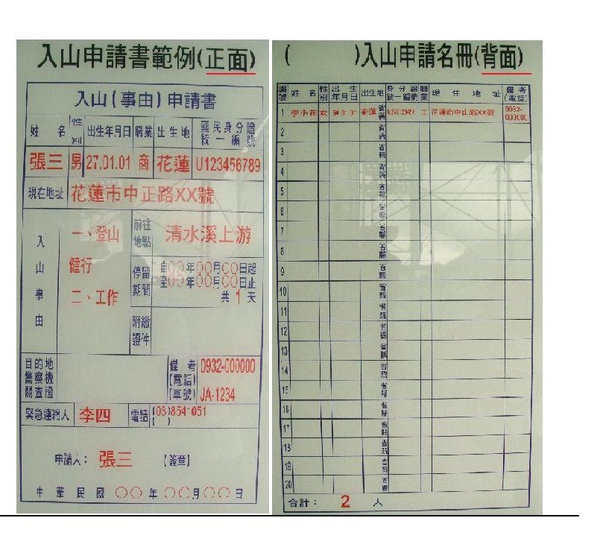 入山申請書範例(正面)
入山(事由)申請書
姓名 性別 出生年月日 職業 出生地 國民身分證統一編號
張三 男 27.01.01 商 花蓮 U123456789
現在地址 花蓮市中正路XX號
入山事由
一、登山
健行
二、工作
前往地點 清水溪上游
停留期間 自00年00月00日起
至00年00月00日止
共1天
附繳證件
目的地警察機關查證
備考(電話)(車號) 0932-000000
JA-1234
緊急連絡人 李四 電話 (03)8541051
申請人: 張三 (簽章)
中華民國 ○○年○○月○○日
( )入山申請名冊(背面)
編號 姓名 性別 出生年月日 出生地 身分證統一編號 職業 現住地址 備考(電話)
1 李小花 女 花蓮 省縣 花蓮市中山路XX號 0932-
2 省縣
3 省縣
4 省縣
5 省縣
6 省縣
7 省縣
8 省縣
9 省縣
10 省縣
11 省縣
12 省縣
13 省縣
14 省縣
15 省縣
16 省縣
17 省縣
18 省縣
19 省縣
20 省縣
合計: 2 人